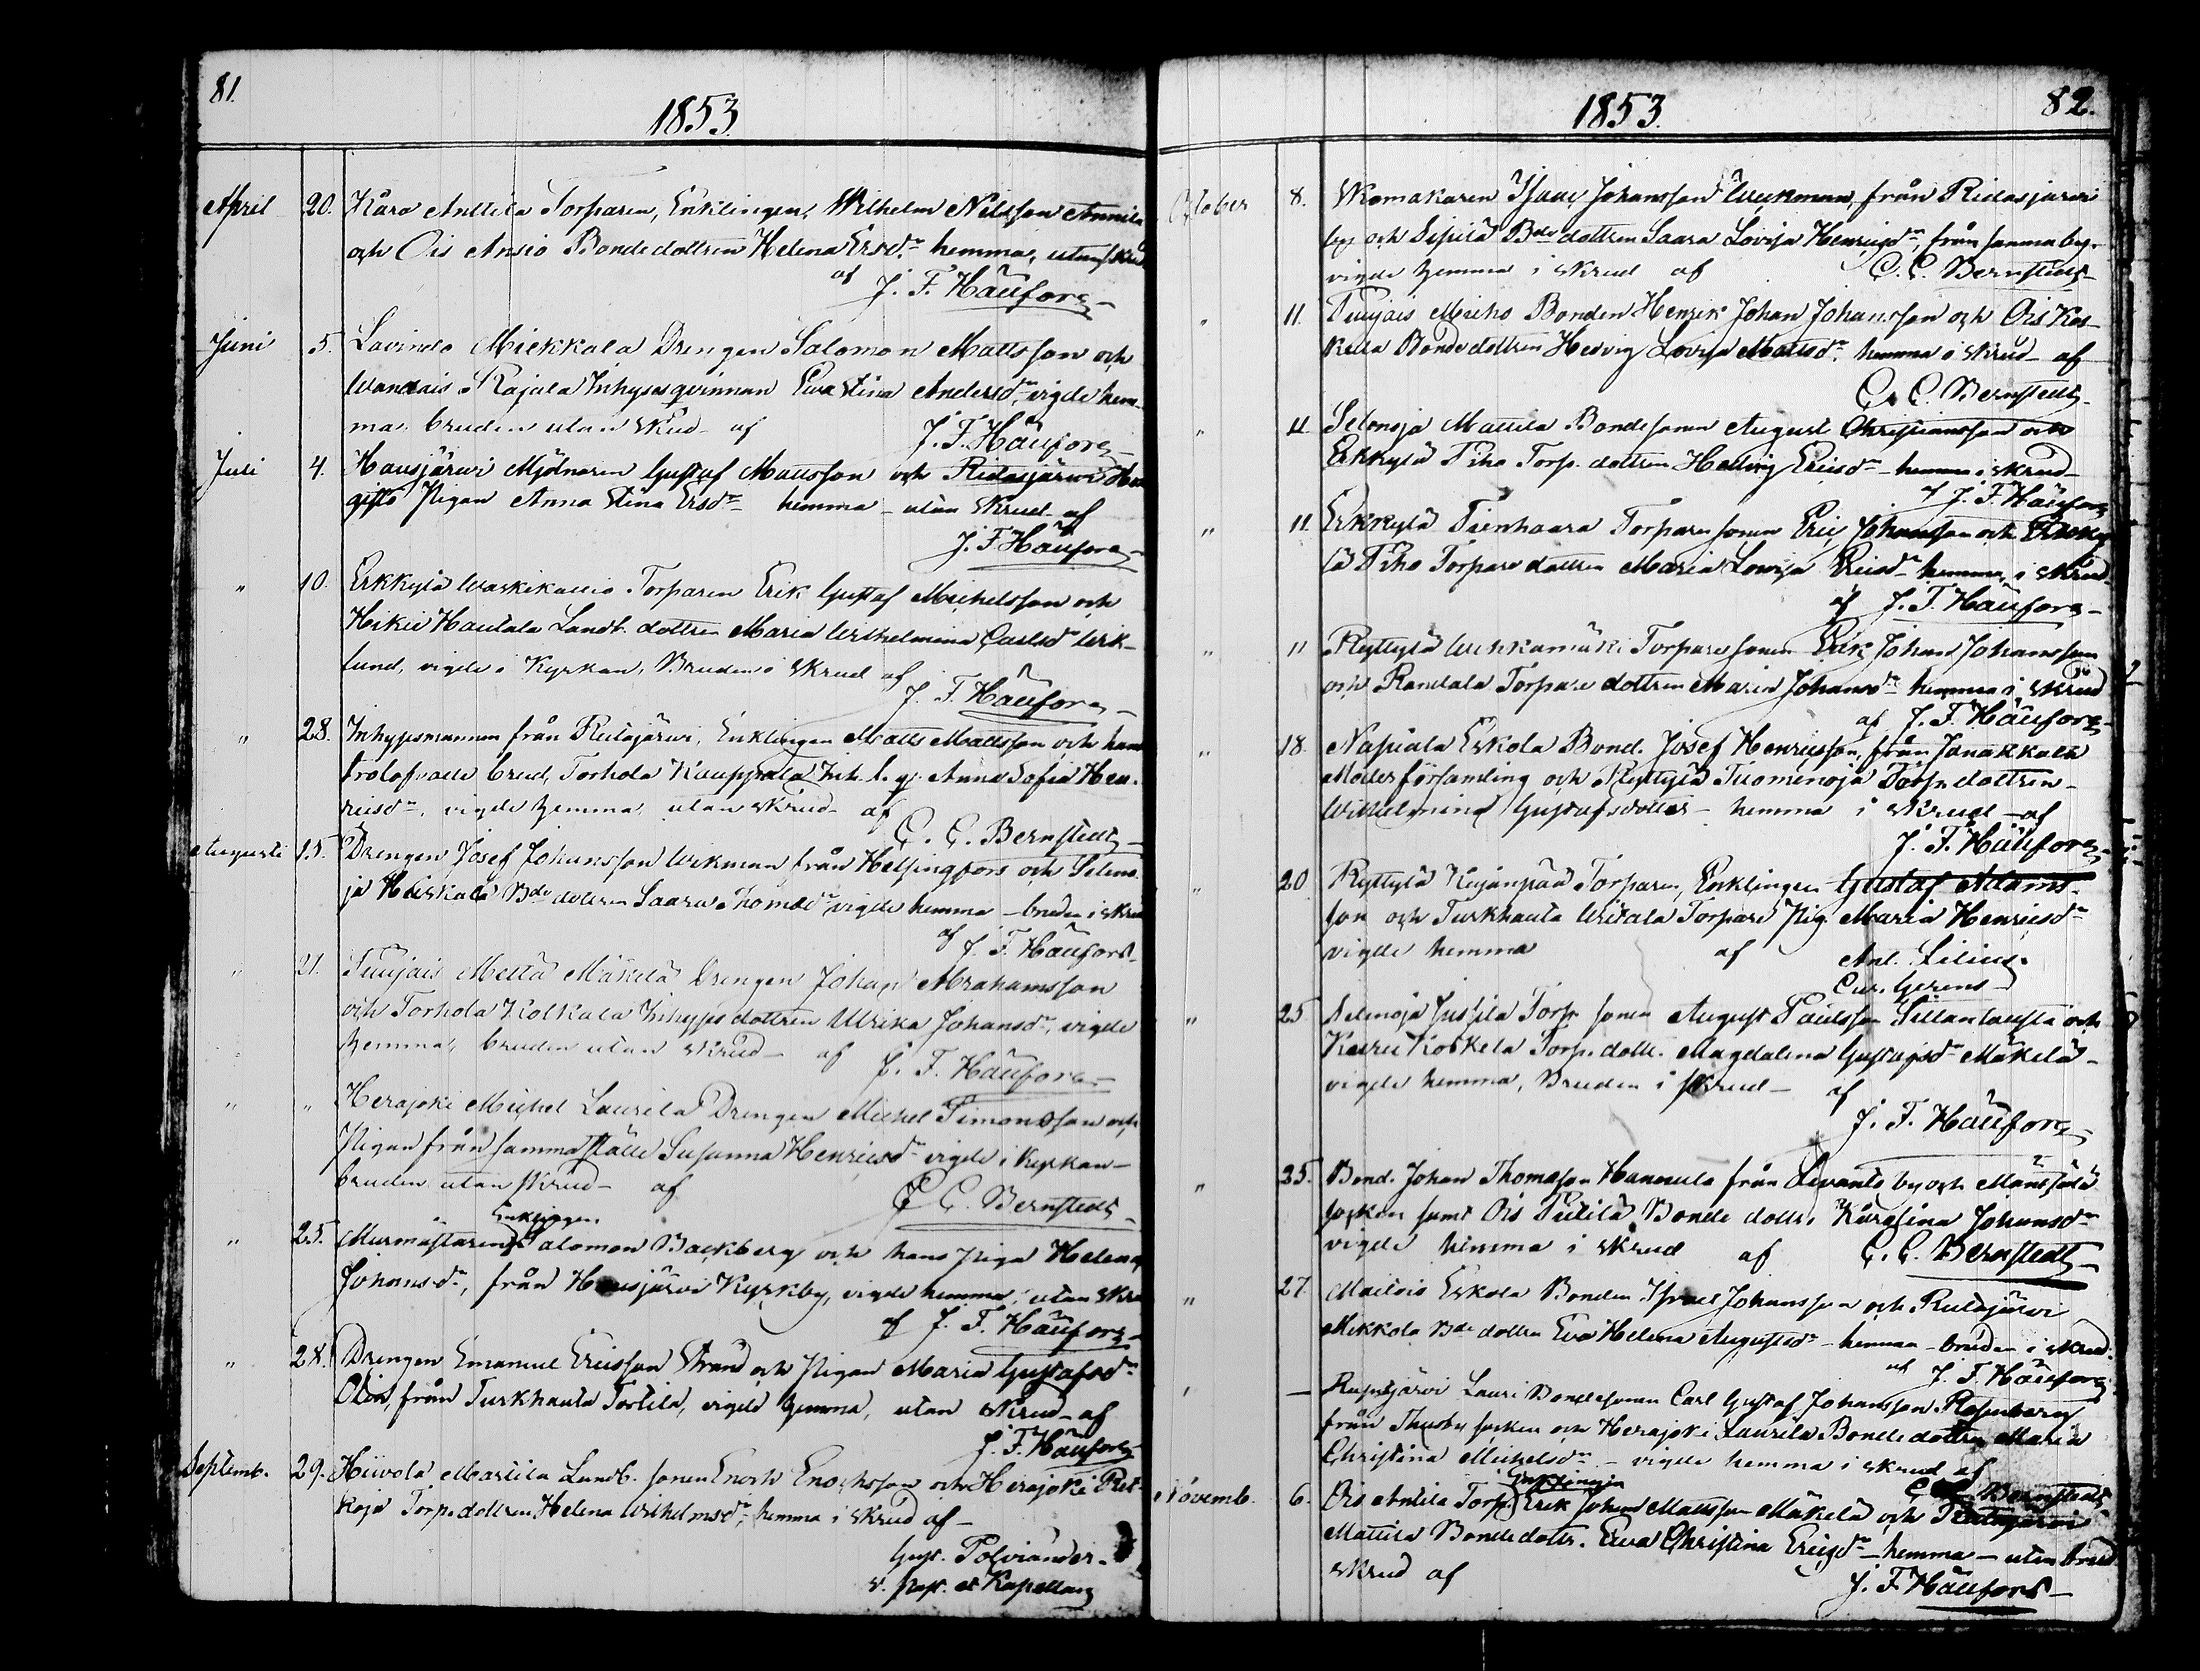 81.
1853.
April 20. Kåra Anttila Torparen, Enklingen, Wilhelm Nilsson Annila
och Ois Ansio Bondedottren Helena Ersd:r hemma, utan skrud
af
J. F. Häufors
Juni 5. Lavindo Miekkala Drengen Salomon Mattsson och
Wandais Rajala Inhyses qvinnan Eva Stina Andersd:r vigde hem-
ma, bruden utan skrud af
J. F. Häufors
Juli 4. Hausjärwi Mjölnaren Gustaf Mattsson och Ridasjärwi
Pigan Anna Stina Ersd:r hemma – utan skrud af
J. F. Häufors
" 10. Erkkylä Waskikallio Torparen Erik Gustaf Michelsson och
Hikiä Hautala Landb. dottren Maria Wilhelmina Carlsd:r Wik-
lund, vigde i Kyrkan, Bruden i skrud af
J. F. Häufors
" 28. Inhysesmannen från Ridasjärwi, Enklingen Matts Mattsson och hans
trolofvade brud, Torhola Kauppala Inh. Anna Sofia Hen-
ricsd:r, vigde hemma, utan skrud af
C. C. Bernstedt
Augusti 15. Drengen Josef Johansson Wikman från Helsingfors och Seleno-
ja Heiskala B:de dottren Saara Thomasd:r, vigde hemma – bruden i skrud
af J. F. Häufors
" 21. Puujais Mellä Mäkelä Drengen Johan Abrahamsson
och Torhola Kolkala Inhyses dottren Ulrika Johansd:r, vigde
hemma, bruden utan skrud – af
J. F. Häufors
" " Herajoki Michel Laurila Drengen Michel Simonsson och
Pigan från samma ställe Susanna Henricsd:r vigde i Kyrkan –
bruden utan skrud – af
C. C. Bernstedt
Enklingen
" 25. Murmästaren Salomon Backberg och hans Piga Helena
Johansd:r, från Hausjärvi Kyrkby, vigde hemma, utan skrud
af J. F. Häufors
" 28. Drengen Emanuel Ericsson Strand och Pigan Maria Gustafsd:r
Olin, från Turkhauta Tortila, vigde hemma, utan skrud – af
J. F. Häufors
Septemb. 29. Hiivola Martila Landb. sonen Enoch Enochsson och Herajoki Ret-
koja Torp. dottren Helena Wilhelmsd:r, hemma i skrud af –
Gust. Polviander.
v. past. et Kapellan
1853.
82.
October 8. Skomakaren Isaac Johansson Wickman, från Ridasjärvi
by och Sipilä B:de dottren Saara Lovisa Henricsd:r, från samma by.
vigde hemma i skrud af C. C. Bernstedt
" 11. Puujais Micko Bonden Henrik Johan Johansson och Ois Kos-
kela Bondedottren Hedvig Lovisa Mattsd:r hemma i skrud – af
C. C. Bernstedt
" 11. Selenoja Mattila Bondesonen August Christiansson och
Erkkylä Piho Torp. dottren Hedvig Ericsd:r – hemma i skrud –
af J. F. Häufors
" 11. Erkkylä Tienhaara Torparesonen Eric Johansson och Erkky-
lä Piho Torparedottren Maria Lovisa Ericsd:r hemma, i skrud
af J. F. Häufors
" 11 Ryttylä Torparesonen Erik Johan Johansson
och Randala Torparedottren Maria Johansd:r hemma i skrud
af J. F. Häufors
" 18. Napiala Eskola Bond. Josef Henricsson, från Janakkala
Moderförsamling och Ryttylä Tuomenoja Torp. dottren –
Wilhelmina Gustafsdotter – hemma i skrud – af
J. F. Häufors
" 20 Ryttylä Kejänpää Torparen, Enklingen Gustaf Adams-
son och Turkhauta Torpare Pig. Maria Henricsd:r
vigde hemma af
And. Lilius.
Cur. Gerens
" 25 Selenoja Jussila Torp. sonen August Paulsson Sillanlausta och
Karu Koskela Torp. dott. Magdalena Gustafsd:r Mäkelä –
vigde hemma, Bruden i skrud – af
J. F. Häufors
" 25. Bond. Johan Thomasson Hannula från Levanto by och Mäntsälä
socken samt Ois Pietilä Bonde dottr. Karolina Johansd:r
vigde hemma i skrud af C. C. Bernstedt
" 27. Maitois Eskola Bonden Israel Johansson och Ridasjärvi
Mikkola B:de dotter Eva Helena Augustsd:r – hemma – bruden i skrud.
af J. F. Häufors
" – Rusutjärvi Lauri Bondesonen Carl Gustaf Johansson Rosenberg
från Thusby socken och Herajoki Laurila Bondedottren Maria
Christina Michelsd:r – vigde hemma i skrud af
C. C. Bernstedt
Enklingen
Novemb. 6. Ois Anttila Torp. Erik Johan Mattsson Mäkelä och Ridasjärvi
Mattila Bondedottr. Eva Christina Ericsd:r – hemma – utan brud
skrud af
J. F. Häufors